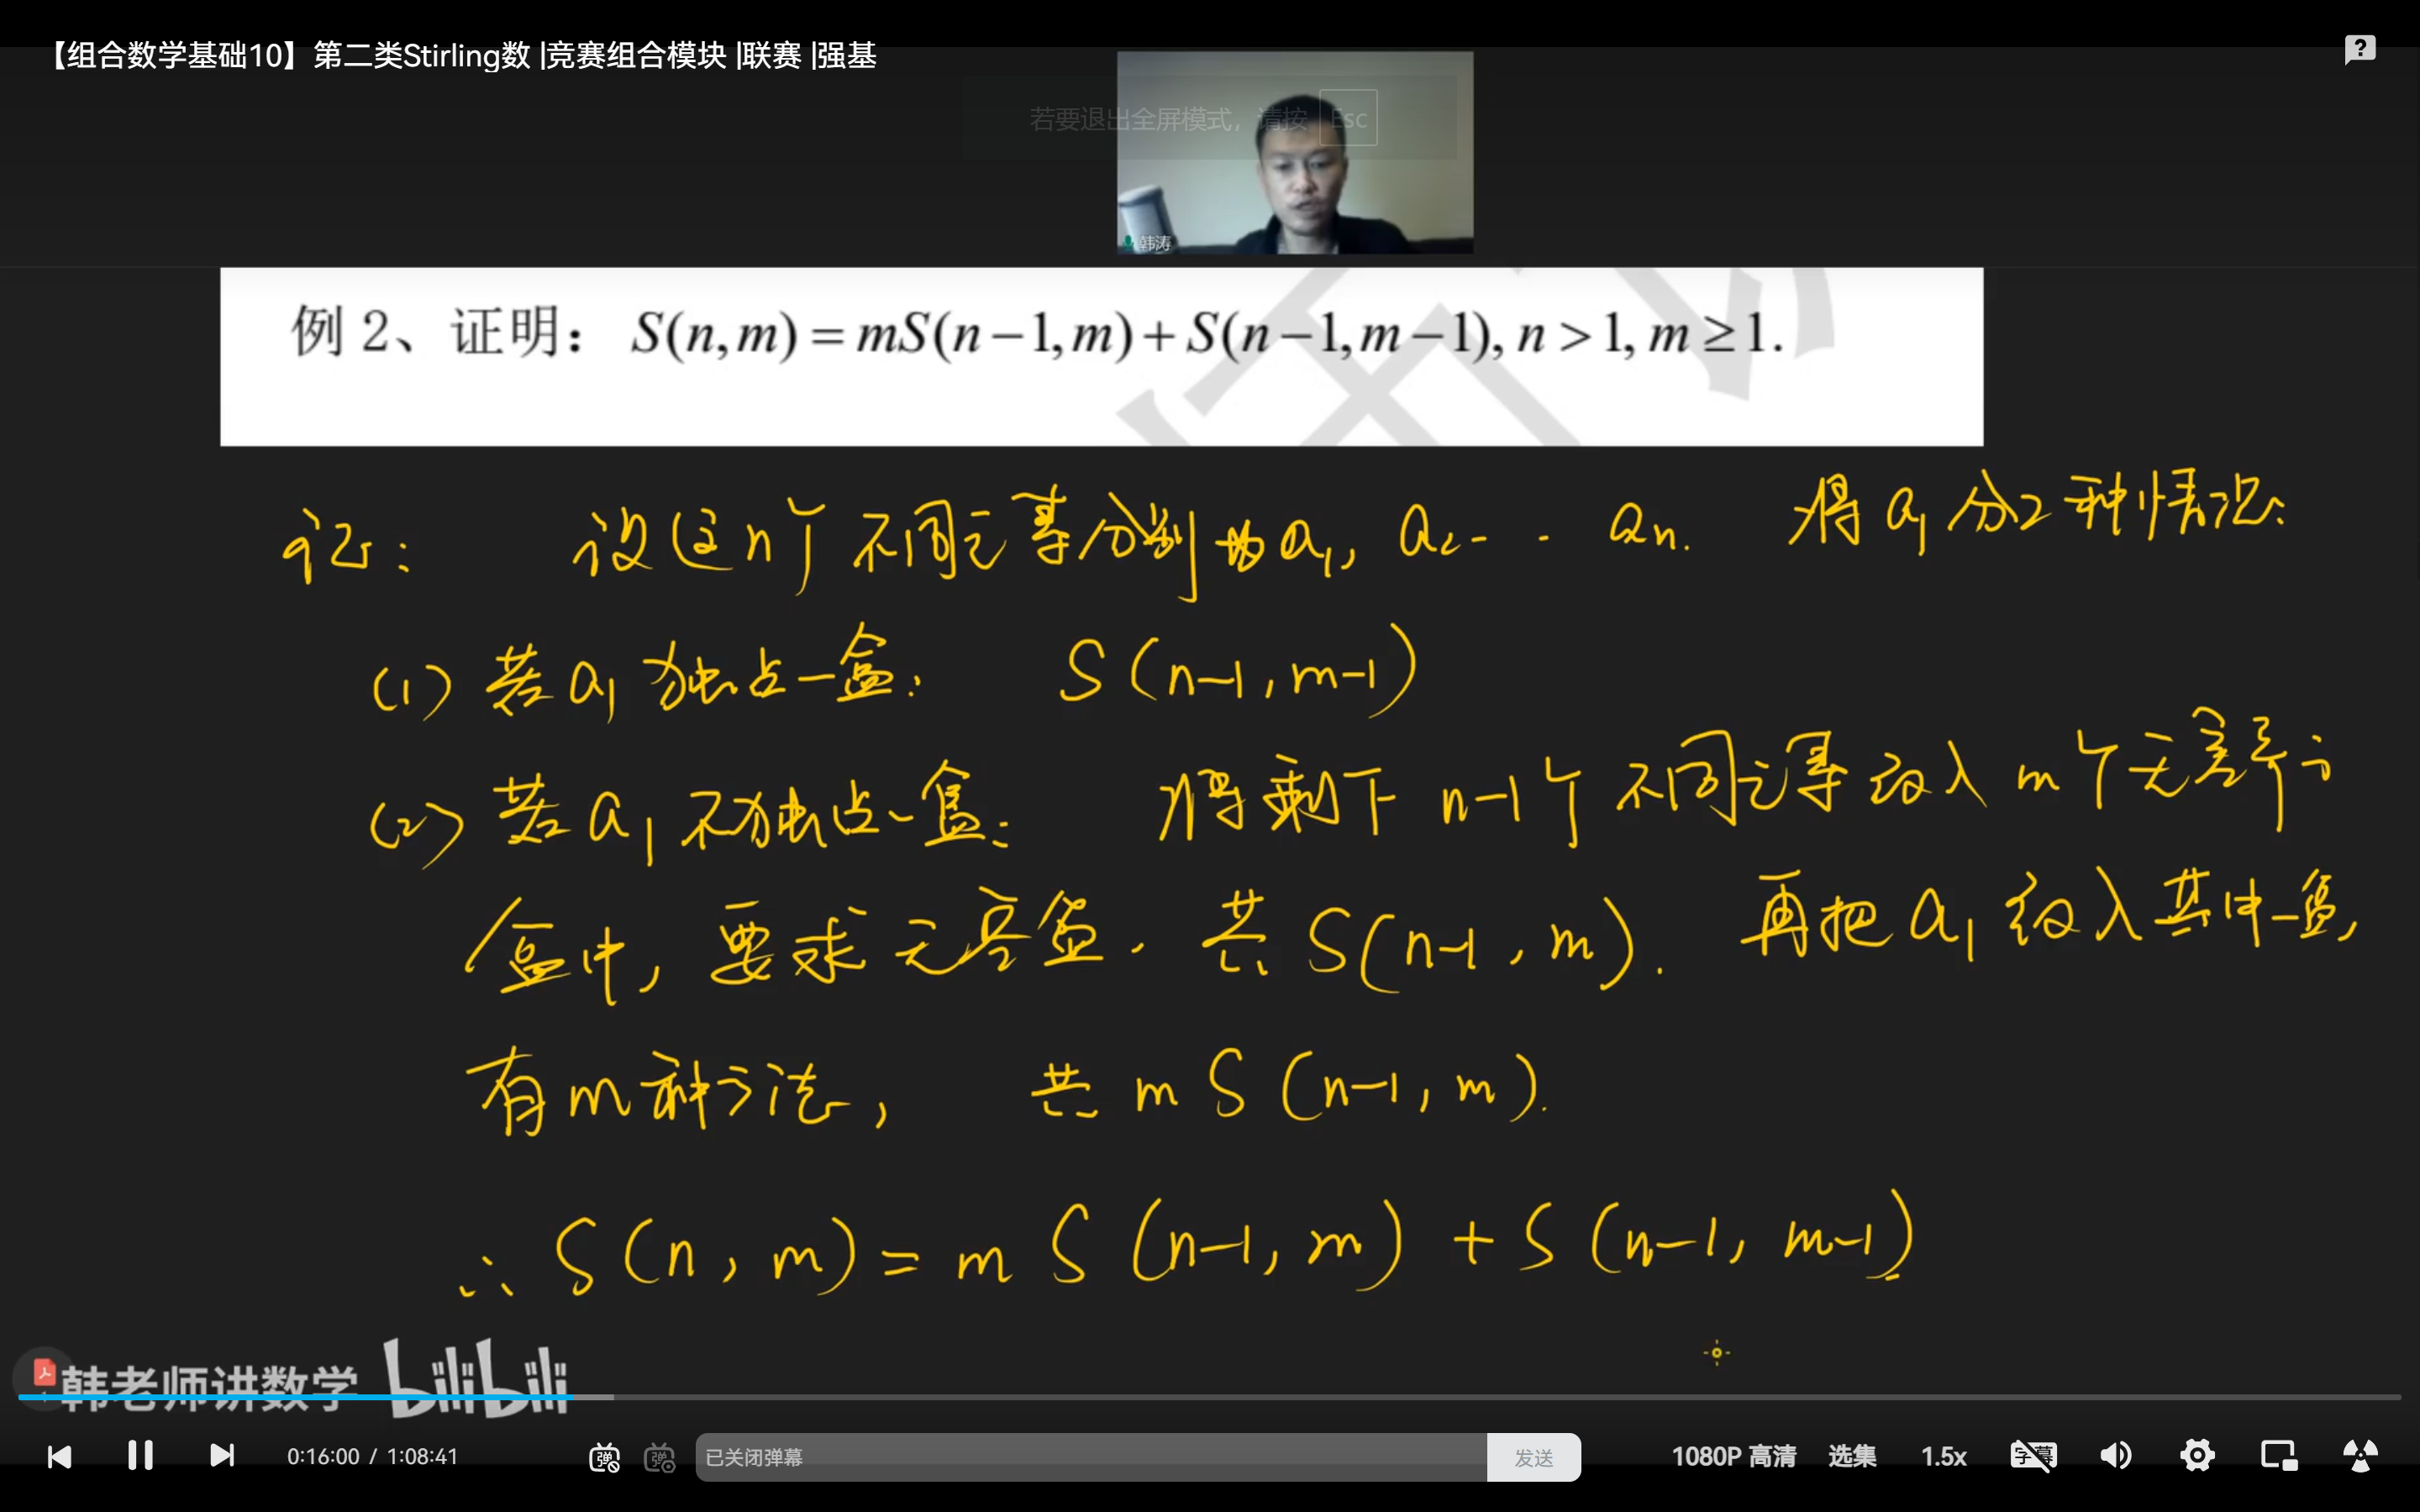 【组合数学基础10】第二类Stirling数 |竞赛组合模块 |联赛 |强基
若要退出全屏模式，请按 Esc
韩涛
例 2、证明： S(n,m)=mS(n−1,m)+S(n−1,m−1), n>1, m≥1.
证： 设这n个不同元素分别为a₁, a₂- - aₙ. 将a₁分2种情况:
(1) 若a₁独占一盒: S(n-1,m-1)
(2) 若a₁不独占一盒: 将剩下 n-1个不同元素放入 m个无差异的
盒中, 要求无空盒. 共 S(n-1,m). 再把a₁放入其中一盒,
有m种方法, 共 m S(n-1,m).
∴ S(n,m)=m S(n-1,m)+S(n-1,m-1)
韩老师讲数学 bilibili
0:16:00 / 1:08:41 弹 弹 已关闭弹幕 发送 1080P 高清 选集 1.5x 字幕